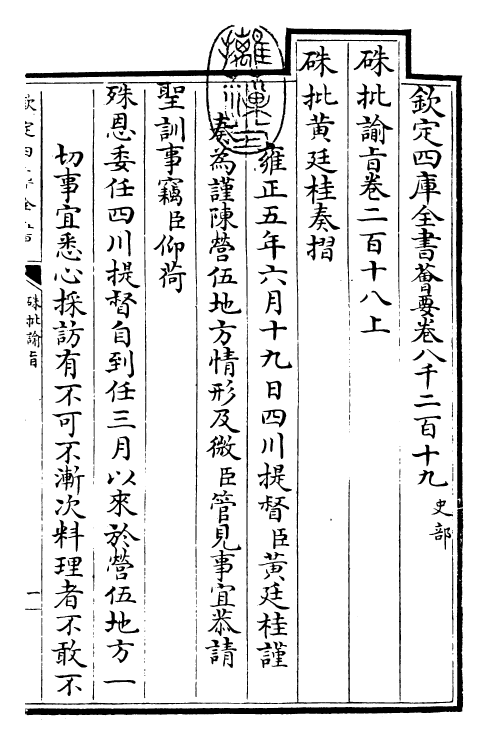 欽定四庫全書薈要卷八千二百十九 史部
硃批諭㫖卷二百十八上
硃批黄廷桂奏摺
雍正五年六月十九日四川提督臣黄廷桂謹
奏為謹陳營伍地方情形及微臣管見事宜恭請
聖訓事竊臣仰荷
殊恩委任四川提督自到任三月以來於營伍地方一
切事宜悉心採訪有不可不漸次料理者不敢不
硃批諭旨
一